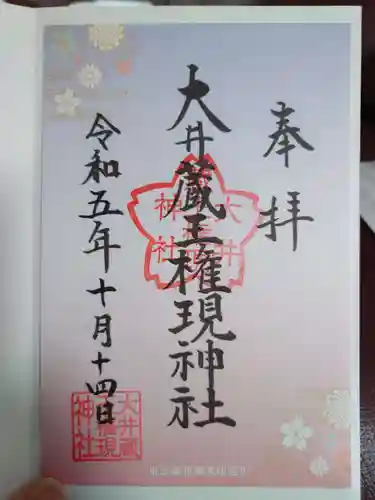 奉拝
大井蔵王権現神社
令和五年十月十四日
大井蔵
王権現
神社